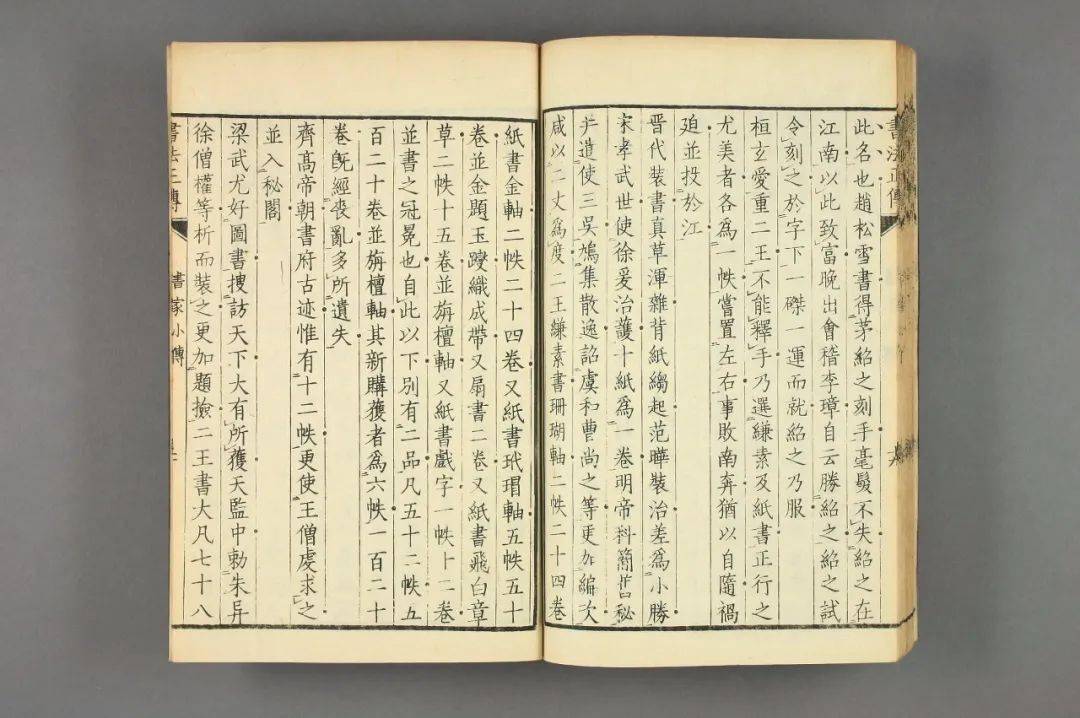 書法正傳
此名也趙松雪書得茅紹之刻手毫髮不失紹之在
江南以此致富晚出會稽李璋自云勝紹之紹之試
令刻之於字下一磔一運而就紹之乃服
桓玄愛重二王不能釋手乃選縑素及紙書正行之
尤美者各爲一帙嘗置左右事敗南奔猶以自隨禍
廹並投於江
晉代裝書真草渾雜背紙縐起范曄裝治差爲小勝
宋孝武世使徐爰治護十紙爲一卷明帝科簡舊秘
并遣使三吳鳩集散逸詔虞和曹尚之等更加編次
咸以二丈爲度二王縑素書珊瑚軸二帙二十四卷
紙書金軸二帙二十四卷又紙書玳瑁軸五帙五十
卷並金題玉躞織成帶又扇書二卷又紙書飛白章
草二帙十五卷並旃檀軸又紙書戲字一帙十二卷
並書之冠冕也自此以下別有二品凡五十二帙五
百二十卷並旃檀軸其新購獲者爲六帙一百二十
卷旣經喪亂多所遺失
齊髙帝朝書府古迹惟有十二帙更使王僧虔求之
並入秘閣
梁武尤好圖書搜訪天下大有所獲天監中勅朱异
徐僧權等析而裝之更加題撿二王書大凡七十八
書法正傳
書家小傳